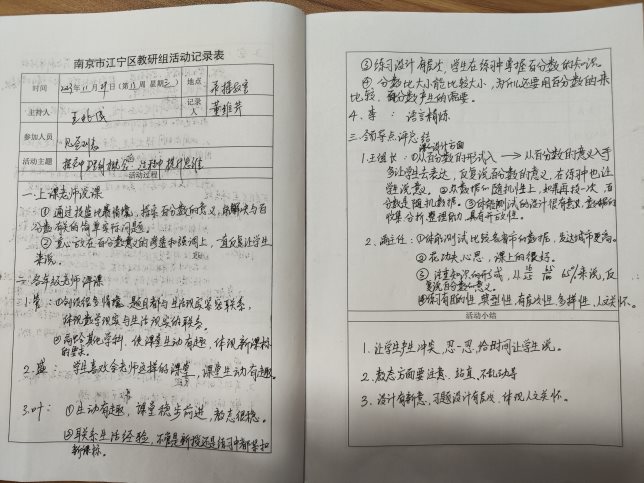 南京市江宁区教研组活动记录表
时间 2023年11月29日(第13周 星期三) 地点 录播教室
主持人 记录人 董维芹
参加人员 见签到表
活动主题 探究中理解概念 过程中提升思维
活动过程
一.上课老师说课
①通过投篮比赛情境,探索百分数的意义,能解决与百
分数有关的简单实际问题。
②重心放在百分数意义的探索和强调上,一直反复让学生
来说。
二.各年级老师评课
1. ①创设很多情境,题目都与生活现实紧密联系,
体现数学现实与生活现实的联系。
②融合其他学科,使课堂生动有趣,体现新课标
的要求。
2.盛:学生喜欢余老师这样的课堂,课堂生动有趣。
3.叶:①生动有趣,课堂稳步前进,教态很稳。
②联系生活经验,不管是新授还是练习中都紧扣
新课标。
③练习设计有层次,学生在练习中掌握百分数的知识。
④分数比大小能比较大小,为什么还要用百分数的来
比较,百分数产生的需要。
4.李:语言精炼
三.领导点评总结
课的设计方面
1.王组长:①从百分数的形式入→从百分数的意义入手
多让学生去表达,反复说百分数的意义,在练习中也让
学生说意义。②在数据的随机性上,如果再投一次,百
分数是随机数据。③体能测试的设计很有意义,数据的
收集分析,整理能力,具有开放性。
2. 主任:①体能测试比较各省市的数据,发达城市更高。
②花功夫心思,课上的很好。
③注重知识的形成,从 65%来说,反
复说百分数的意义。
④练习有目的性,典型性,有层次性,多样性,人文关怀。
活动小结
1.让学生产生冲突,思一思,给时间让学生说。
2.教态方面要注意,站直,不乱动等
3.设计有新意,习题设计有层次,体现人文关怀。